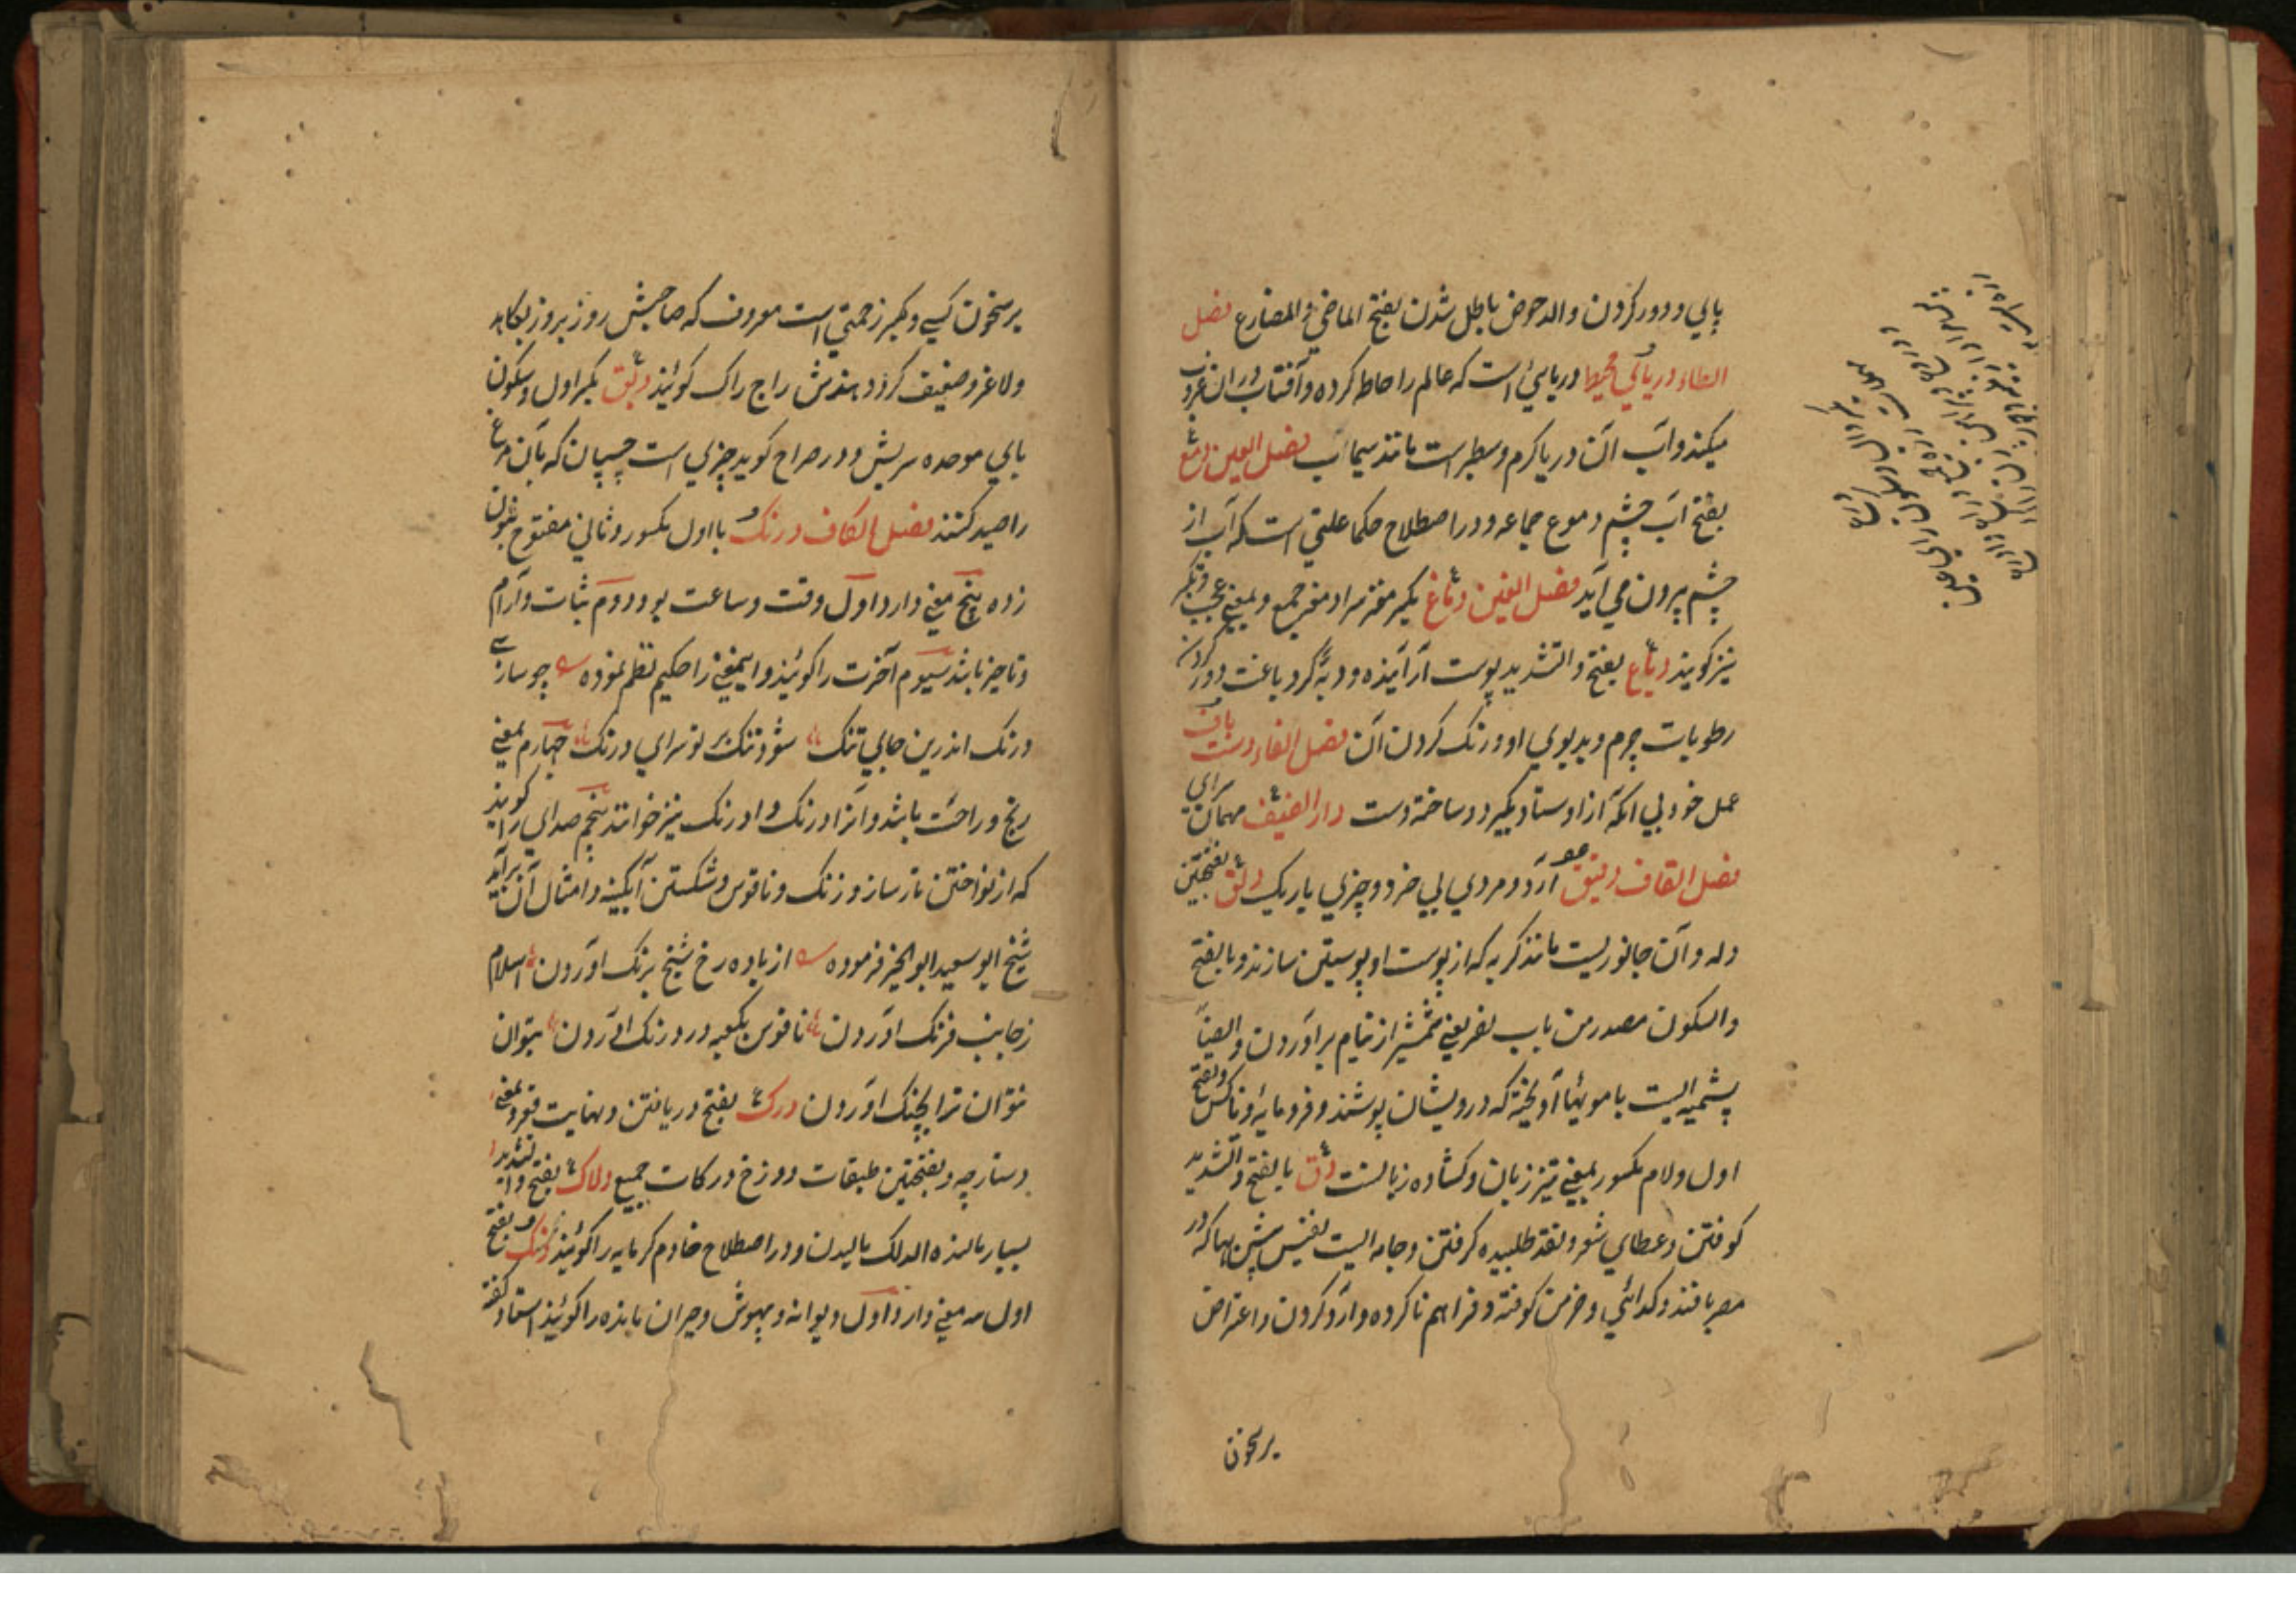 پالي و دور کردن والدحوض باطل شدن بفتح الماضي و المضارع فصل
الطاء دریائي محیط دریائي است که عالم را احاطه کرده و آفتاب در ان غروب
میکند و آب آن دریا گرم و سطبر است مانند سیماب فصل العین دمع
بفتح آب چشم دموع جماعه و در اصطلاح حکما علتي است که آب از
چشم بیرون مي آید فصل الغین دماغ بکسر مغز سر ادمغه جمع و بمعني عجب و تکبر
نیز گویند دباغ بفتح والتشدید پوست آراینده و دبه گر دباغت دور کردن
رطوبات چرم و بدبوي او و رنگ کردن آن فصل الفاء دست باف
عمل خود بي آنکه از اوستاد بگیرد و ساخته دست دار الضیف مهمان سراي
فصل القاف دقیق آرد و مردي بي خرد و چیزي باریک دلق بفتحتین
دله و آن جانوریست مانند گربه که از پوست او پوستین سازند و بالفتح
والسکون مصدر من باب نصر یعني شمشیر از نیام برآوردن و ایضا
پشمینه ایست با مویها آویخته که درویشان پوشند و فرومایه و ناکس و بفتح
اول و لام مکسور بمعني تیز زبان و کشاده زبانست دق بالفتح والتشدید
کوفتن و عطاي شعر و نقد طلبیده گرفتن و جامه ایست نفیس بیش بها که در
مصر بافند و گدائي و خرمن کوفته و فراهم ناکرده و آرد کردن و اعتراض
بر سخون
بر سخون کسي و بکسر زحمتي است معروف که صاحبش روز بروز بکاهد
و لاغر و ضعیف گردد بهندش راج راک گویند دبق بکسر اول و سکون
باي موحده سریش و در صراح گوید چیزي است چسپان که بآن مرغ
را صید کنند فصل الکاف درنگ با اول مکسور و ثاني مفتوح بنون
زده پنج معني دارد اول وقت و ساعت بود دوم ثبات و آرام
و تاخیر باشد سیوم آخرت را گویند و این معني را حکیم نظم نموده چو سازي
درنگ اندرین جاي تنگ شود تنگ بر تو سراي درنگ چهارم بمعني
رنج و راحت باشد و آنرا درنگ و اورنگ نیز خوانند پنجم صداي را گویند
که از نواختن تار ساز و زنگ و ناقوس و شکستن آبگینه و امثال آن برآید
شیخ ابو سعید ابو الخیر فرموده از باده رخ شیخ برنگ آوردن اسلام
ز جانب فرنگ آوردن ناقوس بکعبه در درنگ آوردن بتوان
نتوان ترا بچنگ آوردن درک بفتح دریافتن و نهایت قعر و بمعني
دستارچه و بفتحتین طبقات دوزخ درکات جمع دلاک بفتح و التشدید
بسیار مالنده الدلک مالیدن و در اصطلاح خادم گرمابه را گویند دنگ بفتح
اول سه معني دارد اول دیوانه و بیهوش و حیران مانده را گویند استاد گفته